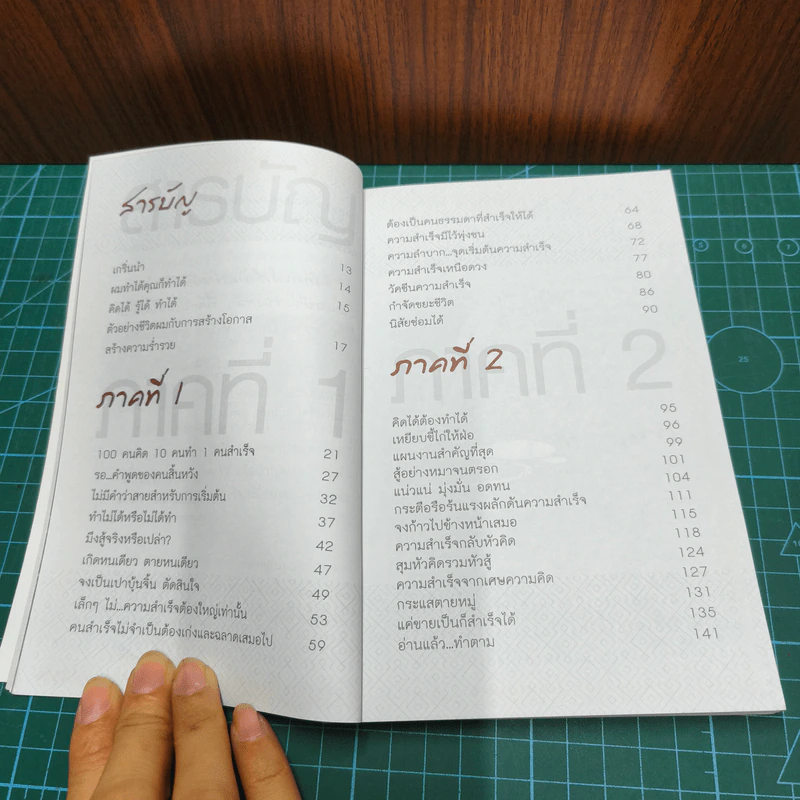 สารบัญ
สารบัญ
เกริ่นนำ 13
ผมทำได้คุณก็ทำได้ 14
คิดได้ รู้ได้ ทำได้ 15
ตัวอย่างชีวิตผมกับการสร้างโอกาส
สร้างความร่ำรวย 17
ภาคที่ 1
ภาคที่ 1
100 คนคิด 10 คนทำ 1 คนสำเร็จ 21
รอ...คำพูดของคนสิ้นหวัง 27
ไม่มีคำว่าสายสำหรับการเริ่มต้น 32
ทำไม่ได้หรือไม่ได้ทำ 37
มึงสู้จริงหรือเปล่า? 42
เกิดหนเดียว ตายหนเดียว 47
จงเป็นเปาบุ้นจิ้น ตัดสินใจ 49
เล็กๆ ไม่...ความสำเร็จต้องใหญ่เท่านั้น 53
คนสำเร็จไม่จำเป็นต้องเก่งและฉลาดเสมอไป 59
ต้องเป็นคนธรรมดาที่สำเร็จให้ได้ 64
ความสำเร็จมีไว้พุ่งชน 68
ความลำบาก...จุดเริ่มต้นความสำเร็จ 72
ความสำเร็จเหนือดวง 77
วัคซีนความสำเร็จ 80
กำจัดขยะชีวิต 86
นิสัยซ่อมได้ 90
ภาคที่ 2
ภาคที่ 2
คิดได้ต้องทำได้ 95
เหยียบขี้ไก่ให้ฝ่อ 96
แผนงานสำคัญที่สุด 99
สู้อย่างหมาจนตรอก 101
แน่วแน่ มุ่งมั่น อดทน 104
กระตือรือร้นแรงผลักดันความสำเร็จ 111
จงก้าวไปข้างหน้าเสมอ 115
ความสำเร็จกลับหัวคิด 118
สุมหัวคิดรวมหัวสู้ 124
ความสำเร็จจากเศษความคิด 127
กระแสตายหมู่ 131
แค่ขายเป็นก็สำเร็จได้ 135
อ่านแล้ว...ทำตาม 141
25
5
6
7